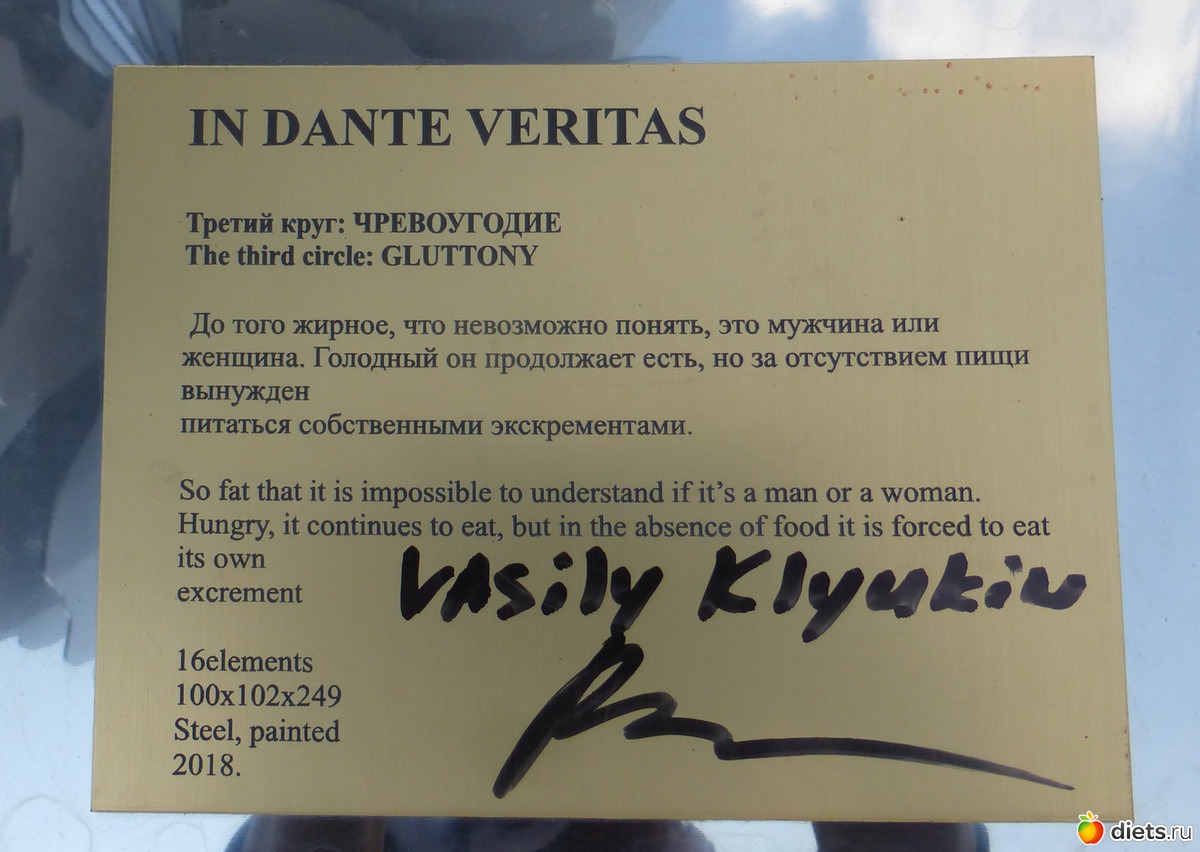 IN DANTE VERITAS
Третий круг: ЧРЕВОУГОДИЕ
The third circle: GLUTTONY
До того жирное, что невозможно понять, это мужчина или
женщина. Голодный он продолжает есть, но за отсутствием пищи
вынужден
питаться собственными экскрементами.
So fat that it is impossible to understand if it’s a man or a woman.
Hungry, it continues to eat, but in the absence of food it is forced to eat
its own
excrement
Vasily Klyukin
16elements
100x102x249
Steel, painted
2018.
diets.ru